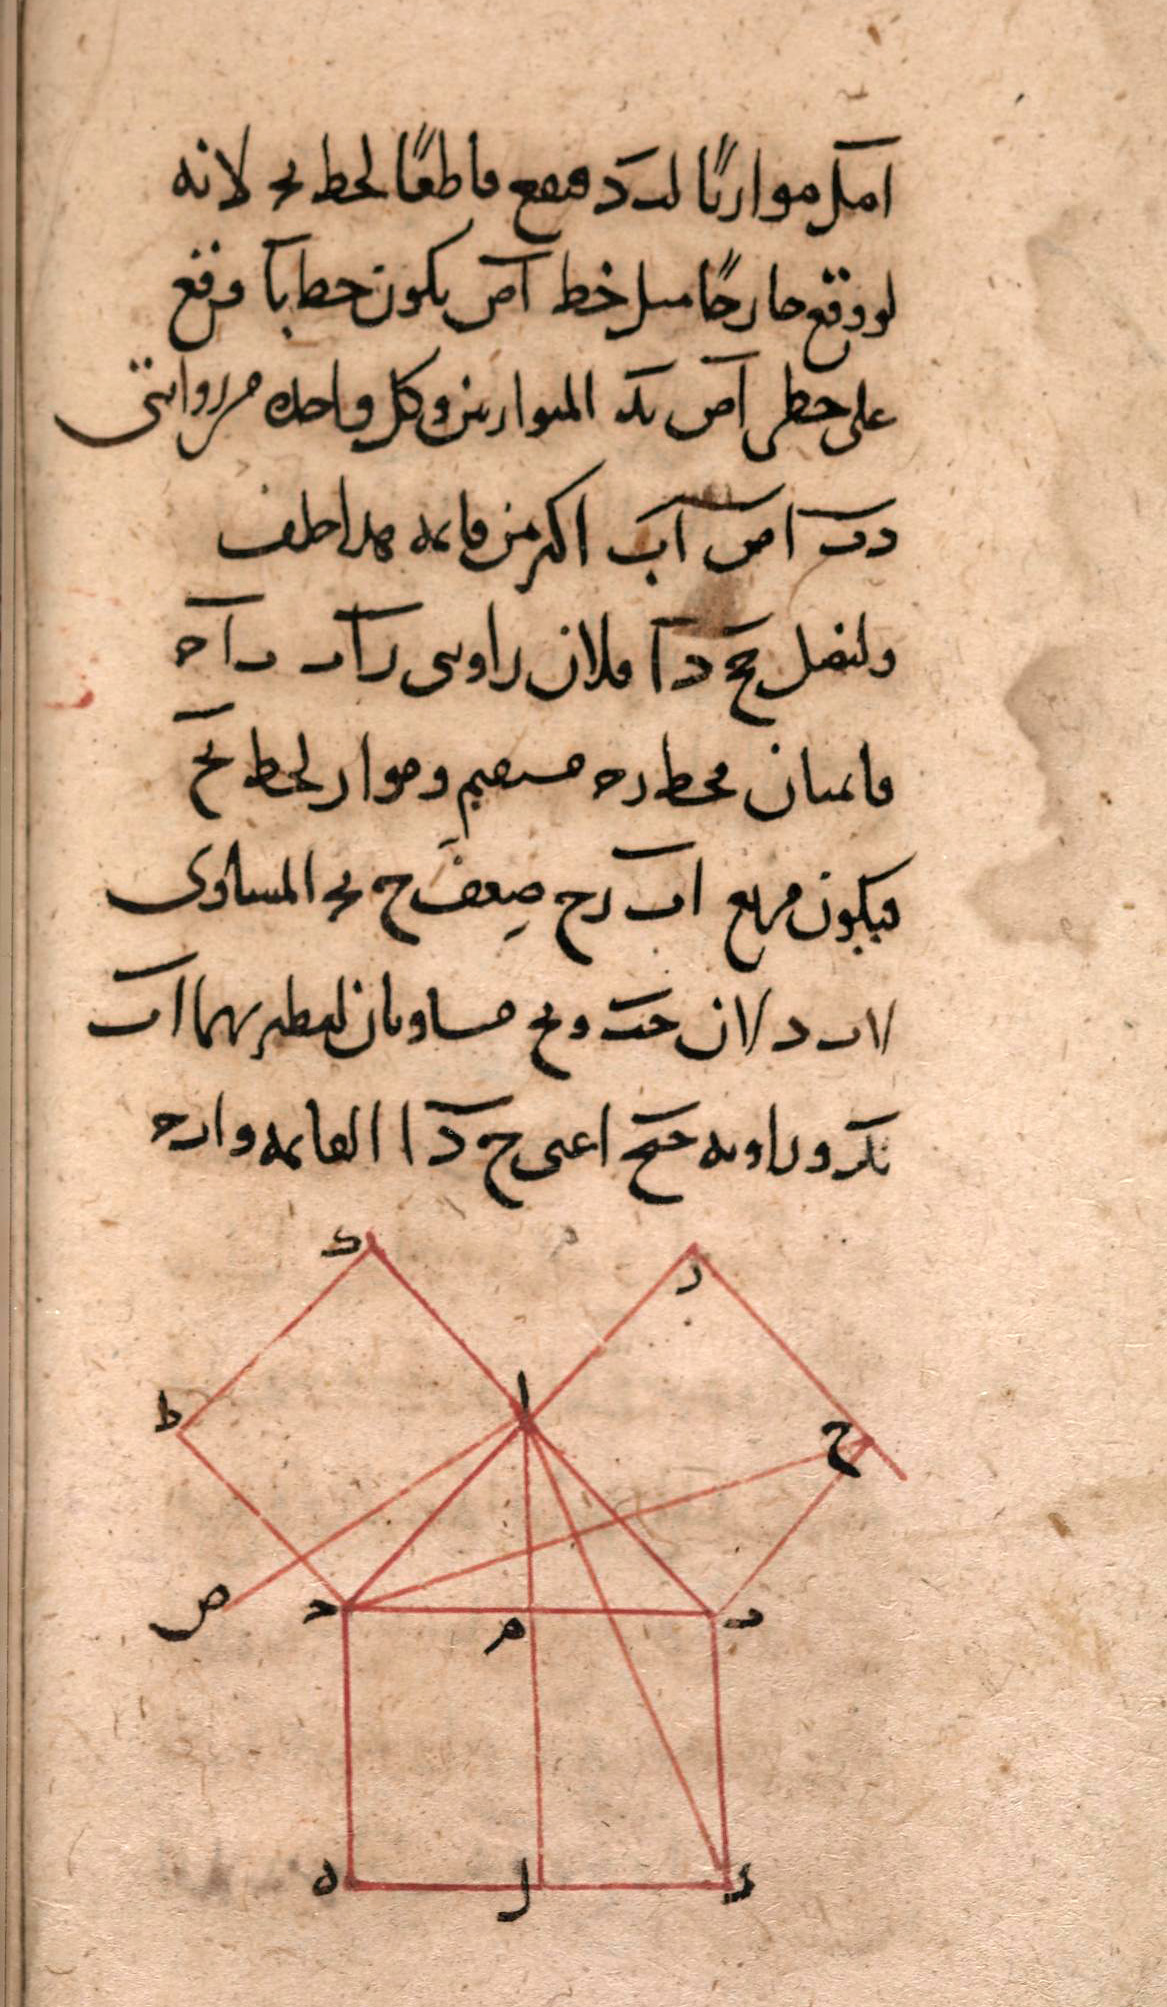 امل موازيًا لب د فيقع قاطعًا لخط بج لانه
لو وقع خارجًا مثل خط اص يكون خط با وقع
على خطى اص بد المتوازيين وكل واحده من زوايتى
دب ا ص اب اكبر من قايمه هذا خلف
ولنصل جح د ا فلان زاويتى ز ا ب ب ا ج
قايمتان فخط ز ج مستقيم ومواز لخط بح
فيكون مربع ا ب ز ح ضعف ح بج المساوى
لا ب د لان حب و بج مساويان لنظيريهما اب
بد وزاويه حبج اعنى ح د ا القايمه و ا ب ج
ك
ز
ا
ط
ح
ص
ج
م
ب
ه
ل
د